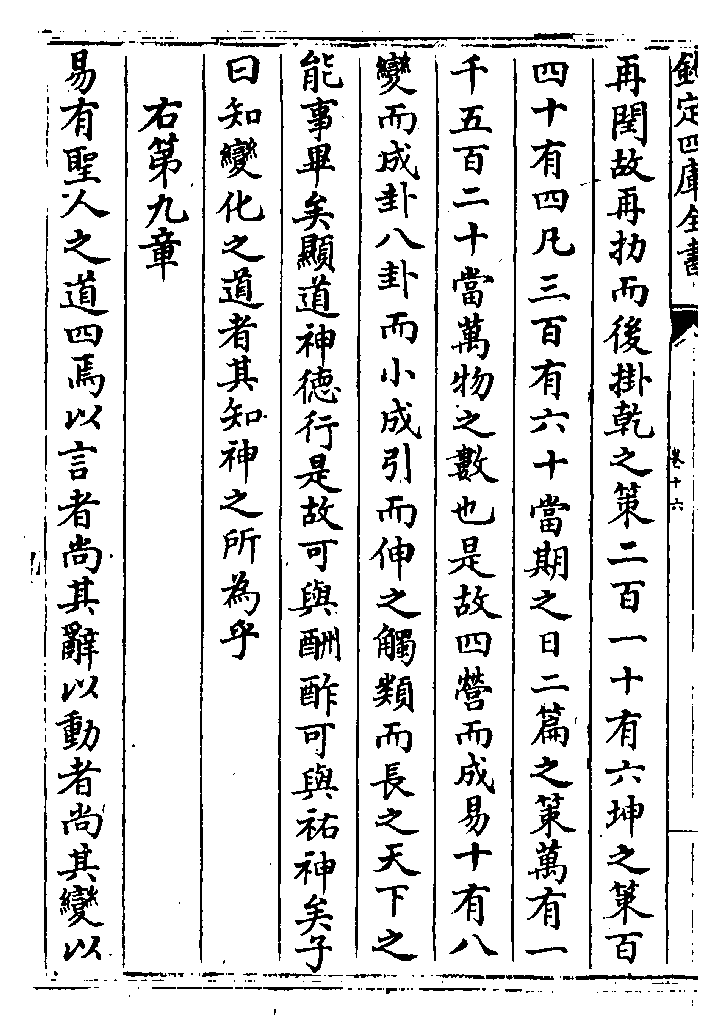 欽定四庫全書
卷十六
再閏故再扐而後掛乾之策二百一十有六坤之策百
四十有四凡三百有六十當期之日二篇之策萬有一
千五百二十當萬物之數也是故四營而成易十有八
變而成卦八卦而小成引而伸之觸類而長之天下之
能事畢矣顯道神德行是故可與酬酢可與祐神矣子
曰知變化之道者其知神之所為乎
右第九章
易有聖人之道四焉以言者尚其辭以動者尚其變以